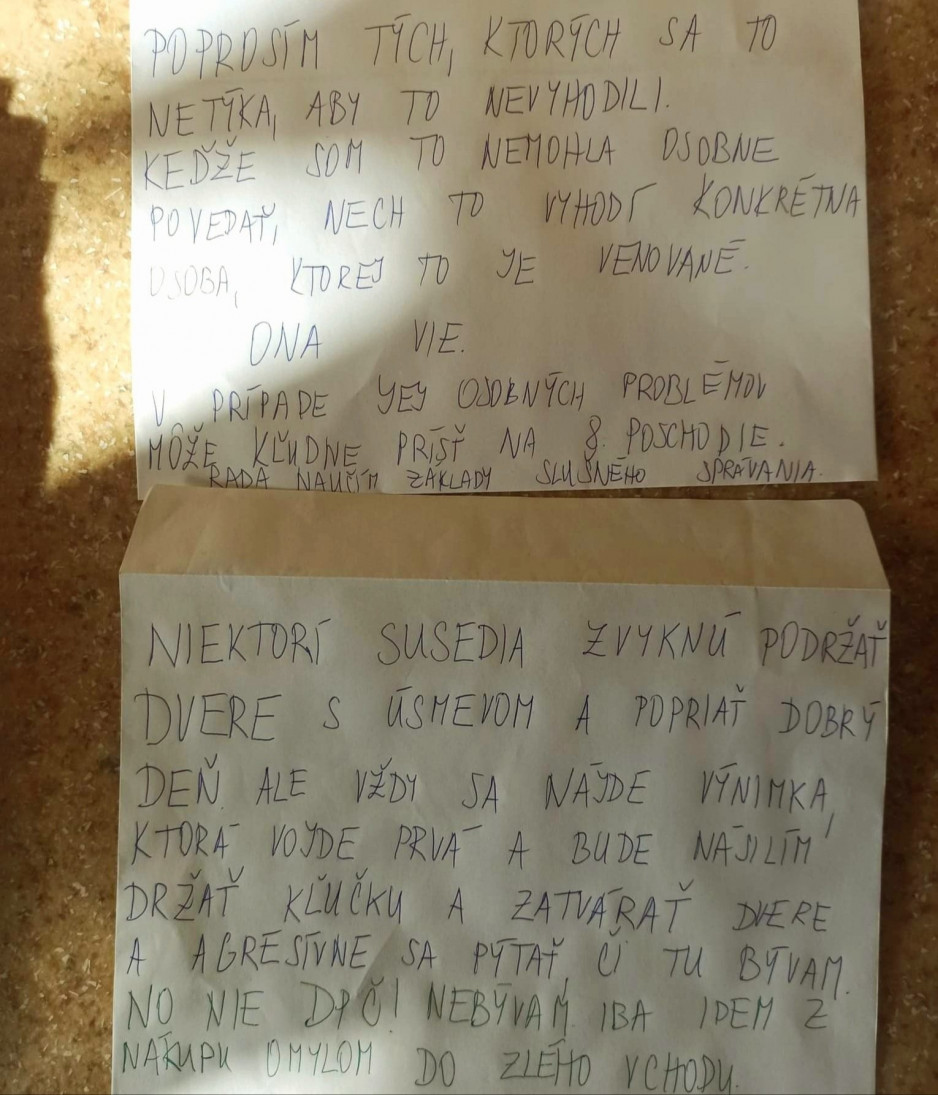 POPROSÍM TÝCH, KTORÝCH SA TO
NETÝKA, ABY TO NEVYHODILI.
KEĎŽE SOM TO NEMOHLA OSOBNE
POVEDAŤ, NECH TO VYHODÍ KONKRÉTNA
OSOBA, KTOREJ TO JE VENOVANÉ.
ONA VIE.
V PRÍPADE JEJ OSOBNÝCH PROBLÉMOV
MÔŽE KĽUDNE PRÍSŤ NA 8. POSCHODIE.
RADA NAUČÍM ZÁKLADY SLUŠNÉHO SPRÁVANIA.
NIEKTORÍ SUSEDIA ZVYKNÚ PODRŽAŤ
DVERE S ÚSMEVOM A POPRIAŤ DOBRÝ
DEŇ. ALE VŽDY SA NÁJDE VÝNIMKA,
KTORÁ VOJDE PRVÁ A BUDE NÁSILÍM
DRŽAŤ KĽUČKU A ZATVÁRAŤ DVERE
A AGRESÍVNE SA PÝTAŤ, ČI TU BÝVAM.
NO NIE DPČ! NEBÝVAM. IBA IDEM Z
NÁKUPU OMYLOM DO ZLÉHO VCHODU.